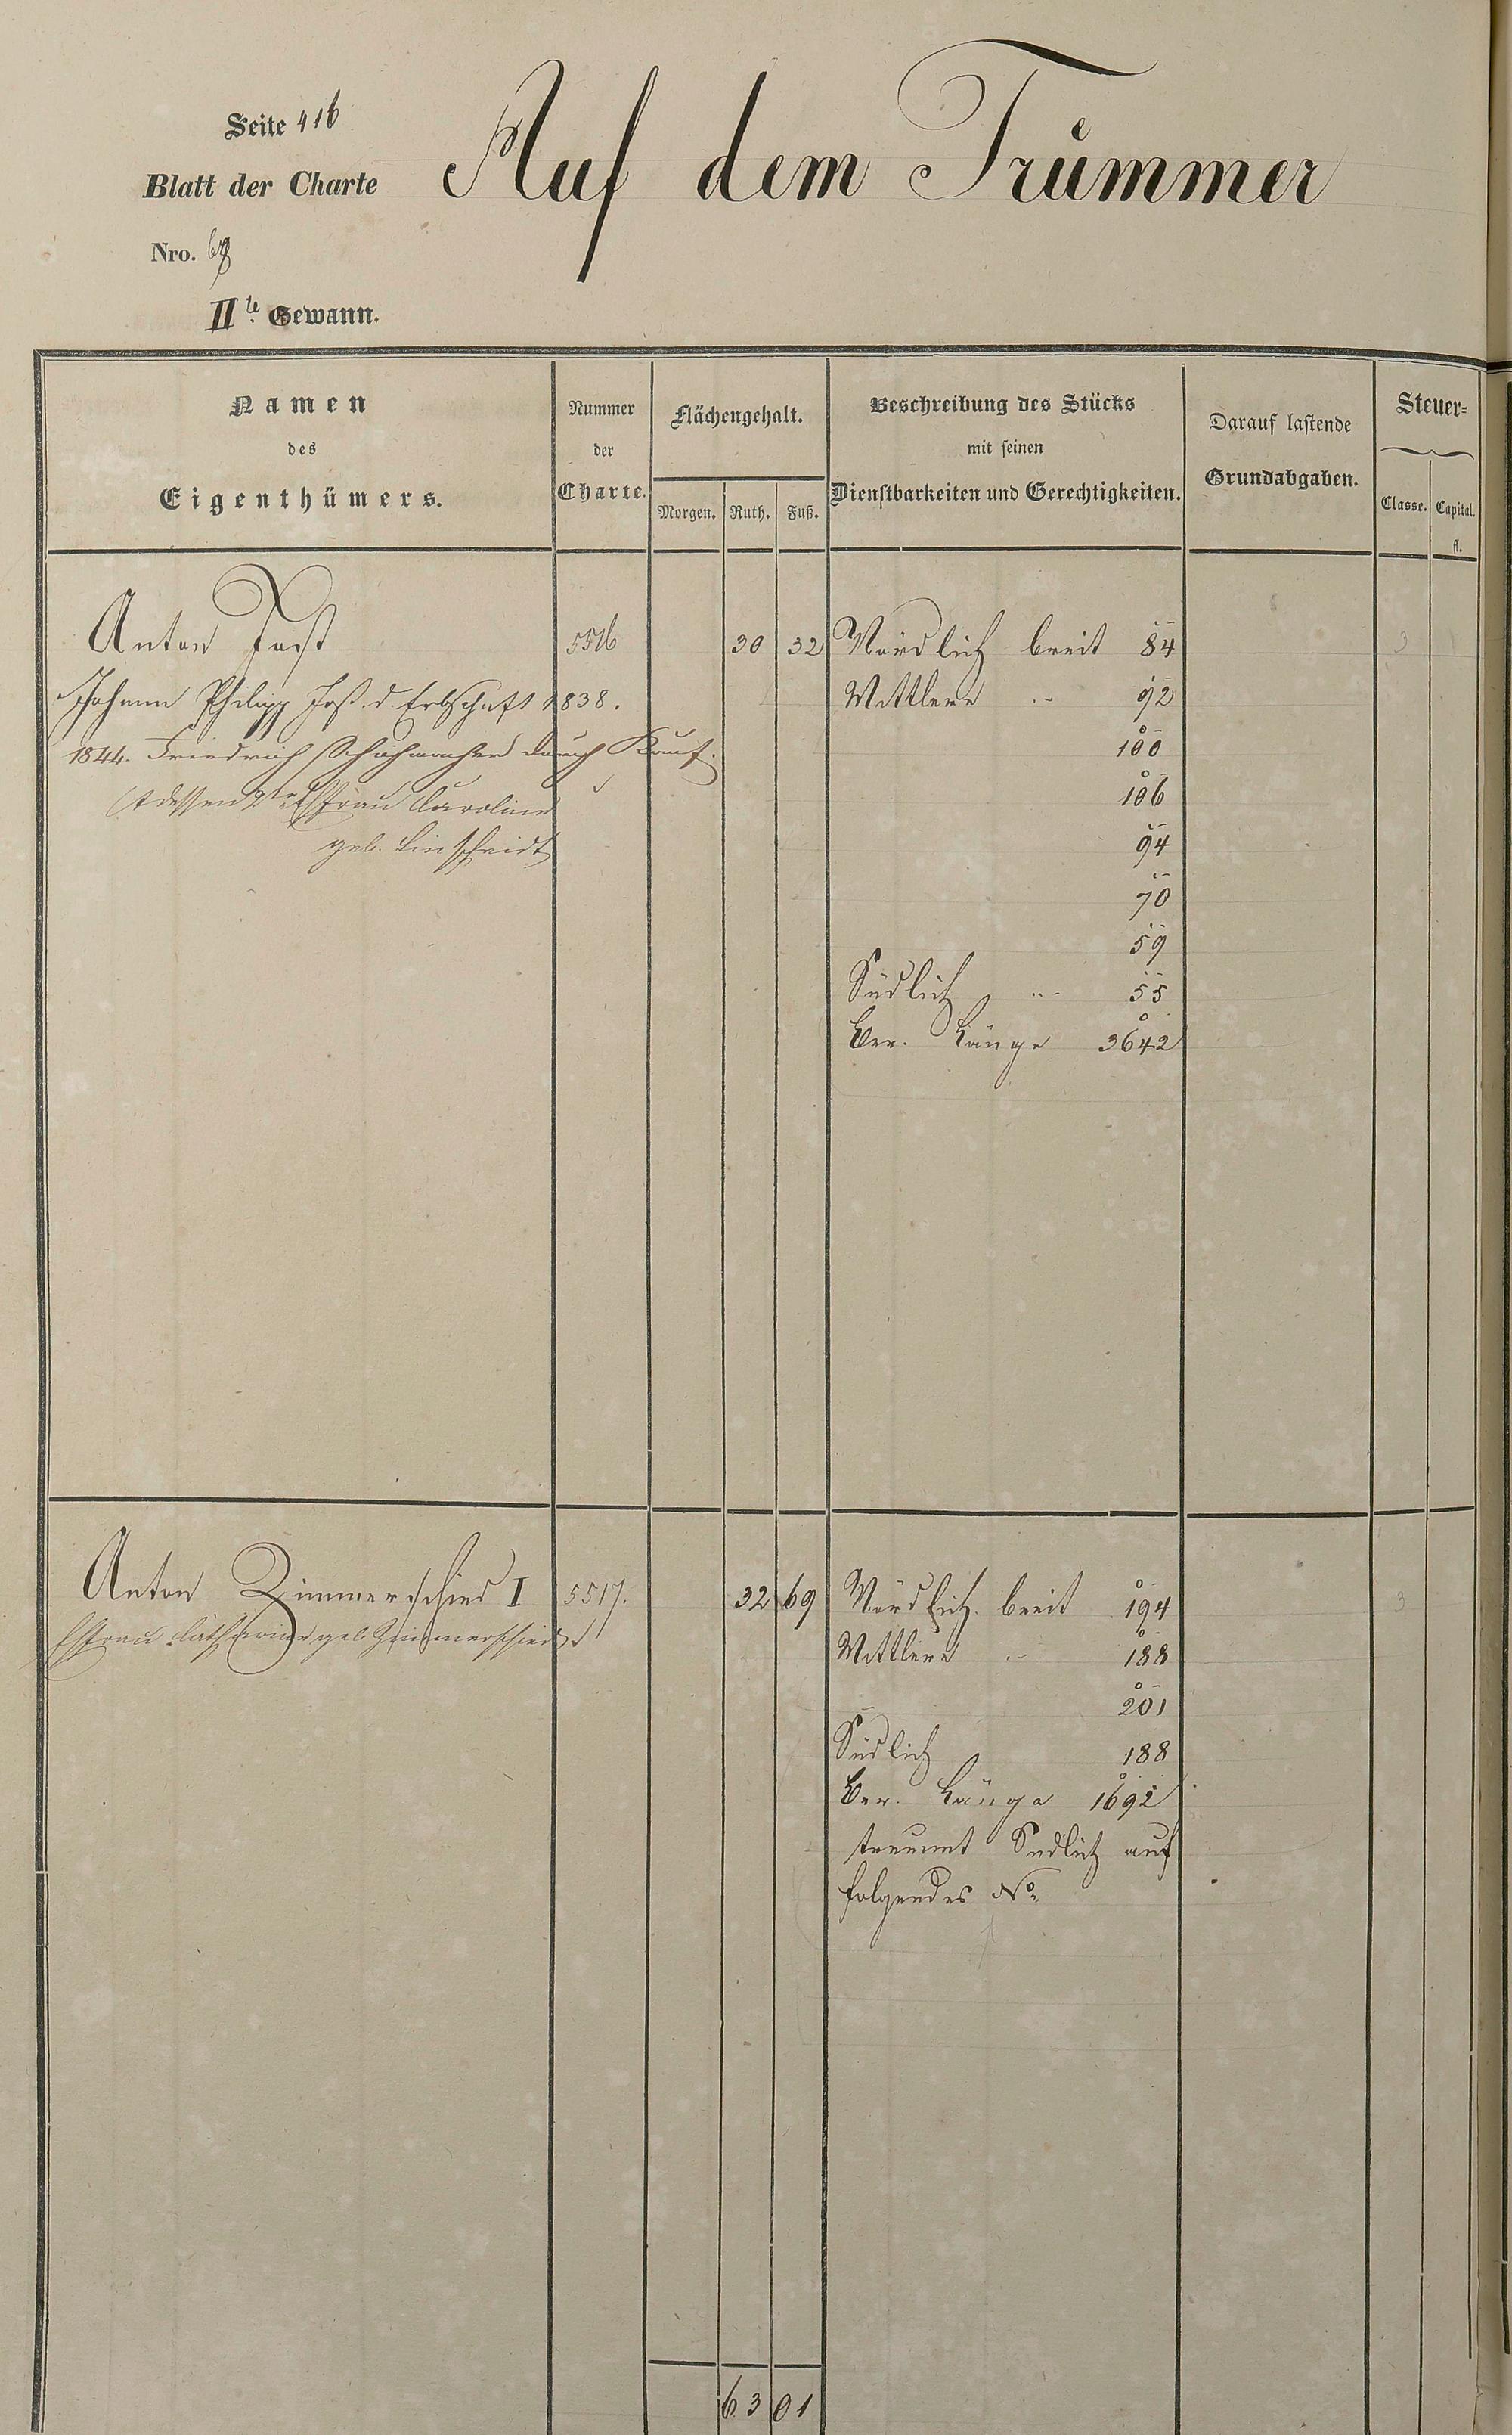 Seite 416
Blatt der Charte
Auf dem Trümmer
Nro. 68
IIte Gewann.
Namen
des
Eigenthümers.
Nummer
der
Charte.
Flächengehalt.
Morgen. Ruth. Fuß.
Beschreibung des Stücks
mit seinen
Dienstbarkeiten und Gerechtigkeiten.
Darauf lastende
Grundabgaben.
Steuer-
Classe. Capital.
fl.
Anton 5516 30 32 Nördlich breit 84 3
Johann Philipp d. Erbschaft 1838. Mittlere " 92
1844. Friedrich Schuhmacher durch Kauf. 100
dessen 2te Ehfrau Caroline 106
geb. Linscheidt 94
70
59
Südlich " 55
Ber. Länge 3642
Anton Zimmerschied I 5517. 32 69 Nördlich breit 194 3
Ehfrau Catharine geb. Zimmerschied Mittlere " 188
201
Südlich 188
Ber. Länge 1692
Südlich auf
folgendes No
63 01